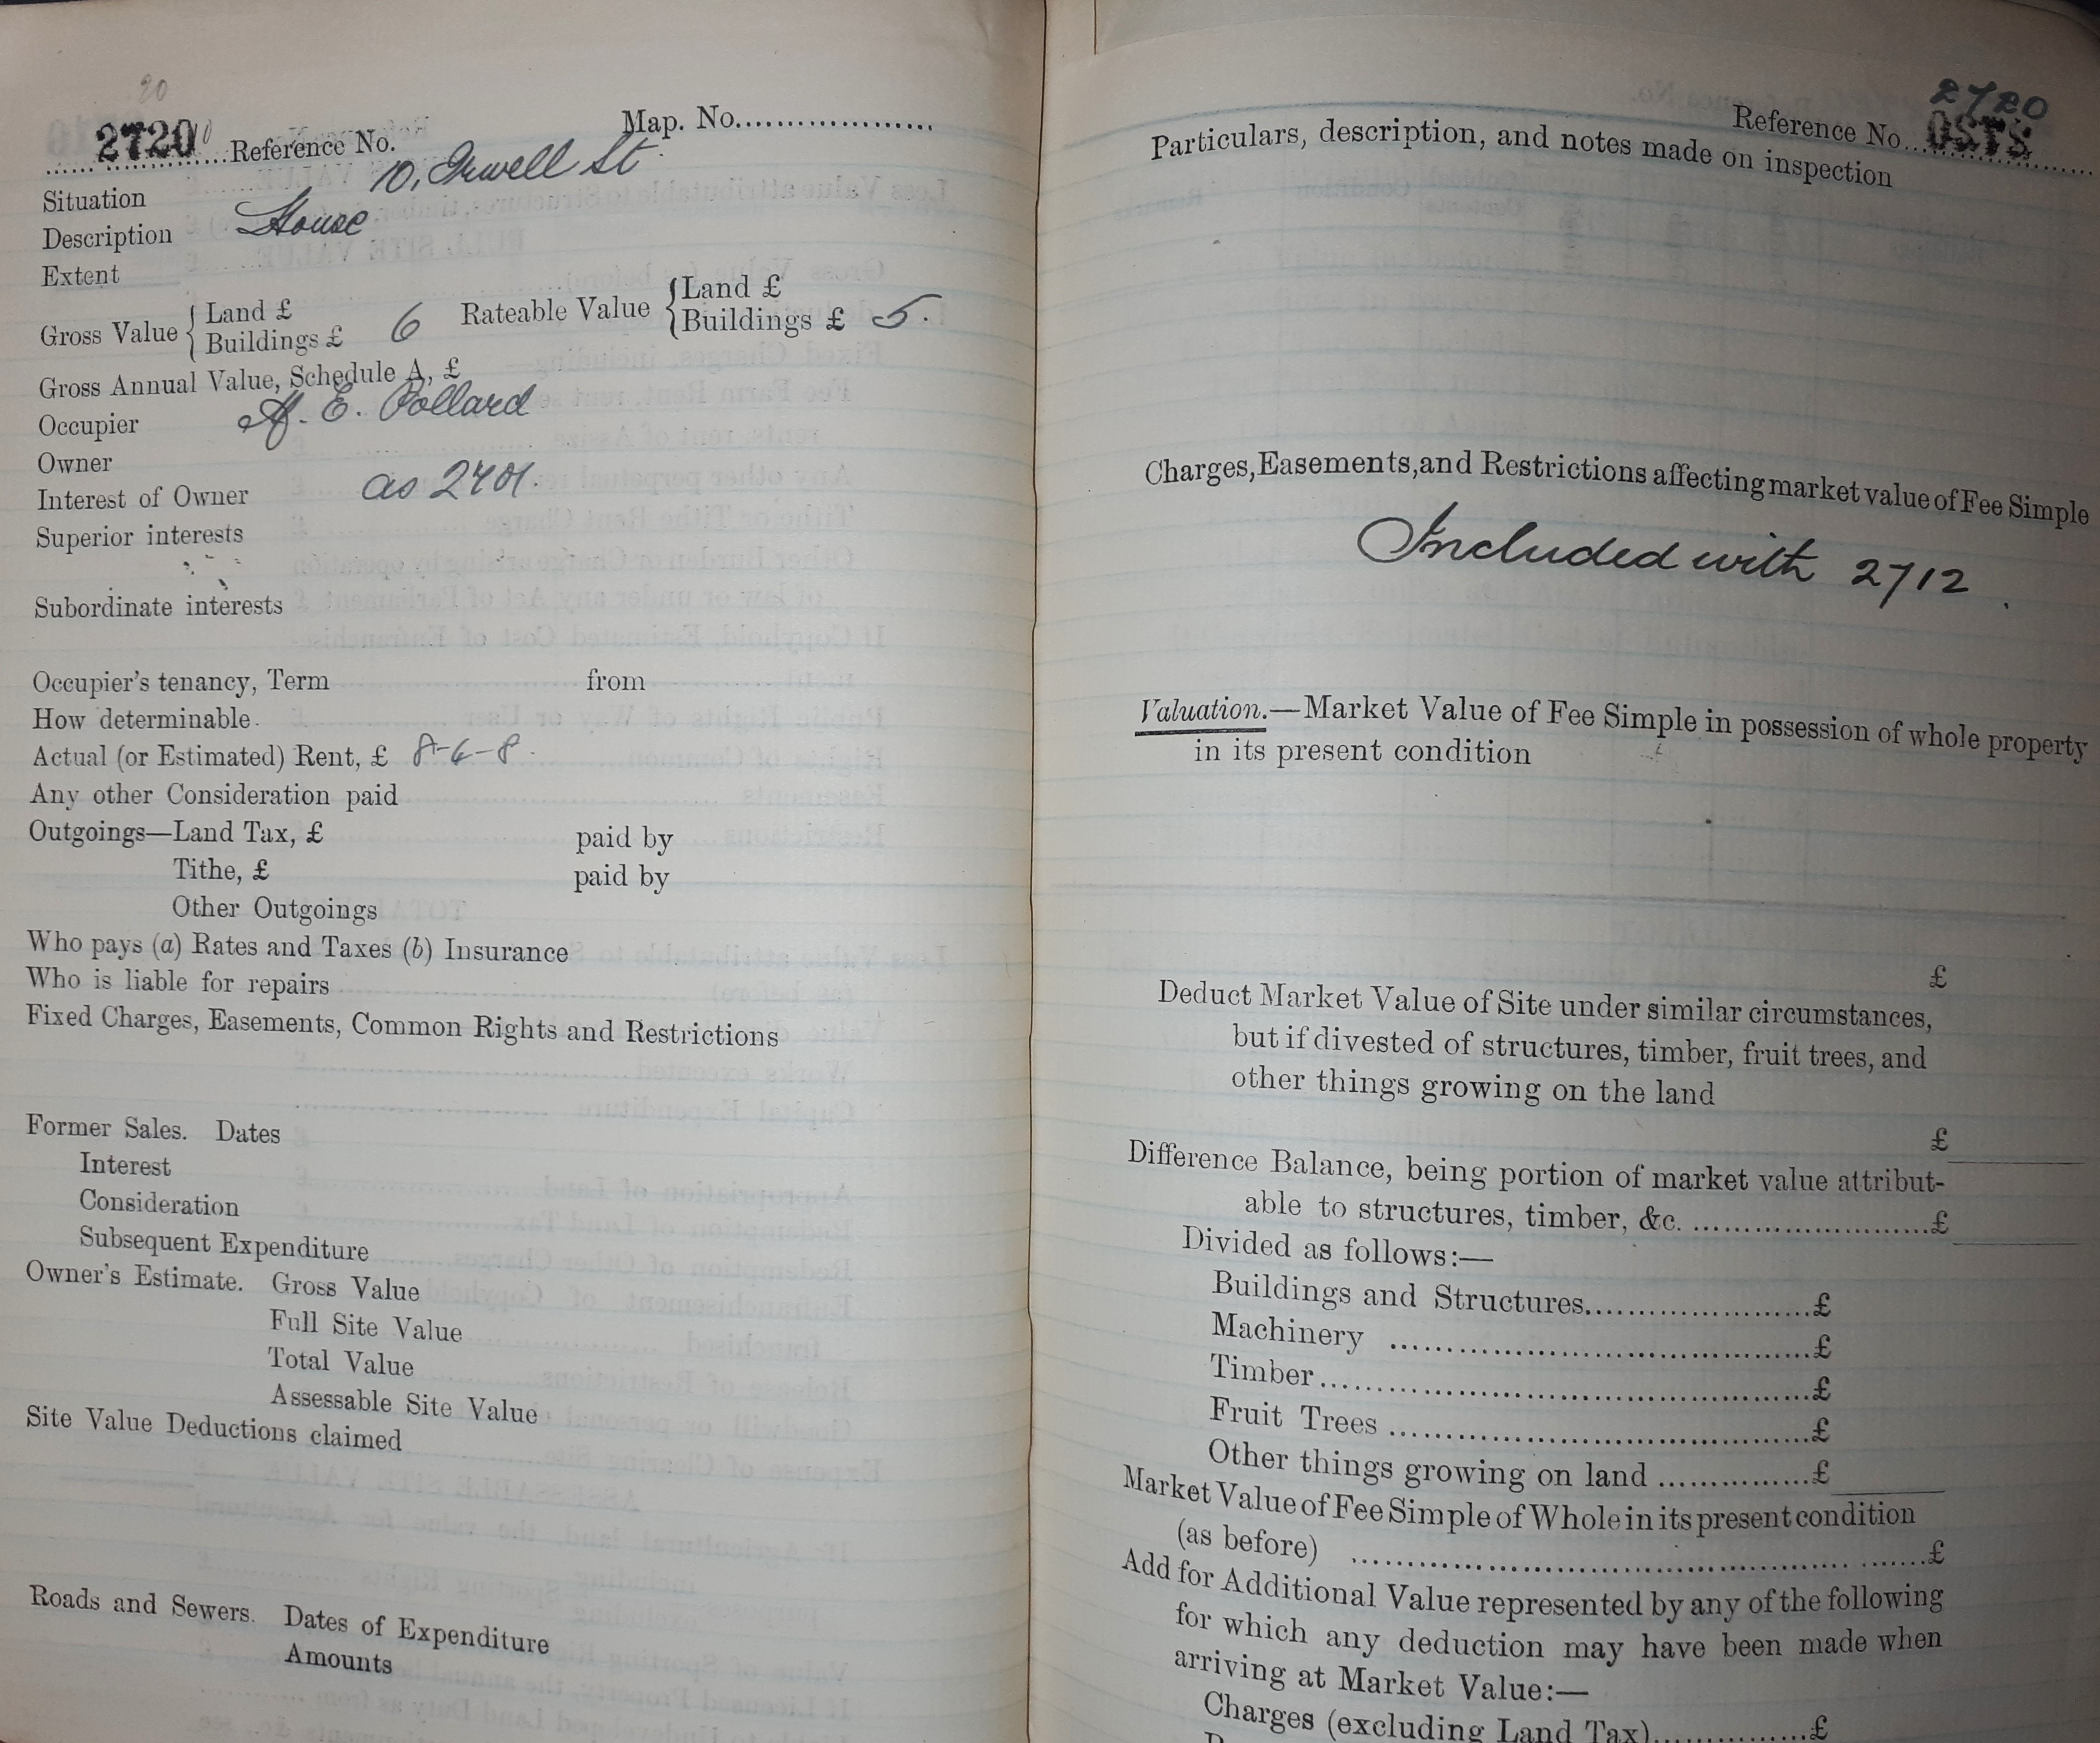 20
2720 Reference No. Map. No.
Situation 10, Irwell St.
Description House
Extent
Gross Value { Land £
Buildings £ 6
Rateable Value { Land £
Buildings £ 5.
Gross Annual Value, Schedule A, £
Occupier A. E. Pollard
Owner
Interest of Owner as 2701.
Superior interests
Subordinate interests
Occupier's tenancy, Term from
How determinable
Actual (or Estimated) Rent, £ 8-6-8.
Any other Consideration paid
Outgoings—Land Tax, £ paid by
Tithe, £ paid by
Other Outgoings
Who pays (a) Rates and Taxes (b) Insurance
Who is liable for repairs
Fixed Charges, Easements, Common Rights and Restrictions
Former Sales. Dates
Interest
Consideration
Subsequent Expenditure
Owner's Estimate. Gross Value
Full Site Value
Total Value
Assessable Site Value
Site Value Deductions claimed
Roads and Sewers. Dates of Expenditure
Amounts
2720
Reference No.
Particulars, description, and notes made on inspection
Charges, Easements, and Restrictions affecting market value of Fee Simple
Included with 2712.
Valuation.—Market Value of Fee Simple in possession of whole property
in its present condition
£
Deduct Market Value of Site under similar circumstances,
but if divested of structures, timber, fruit trees, and
other things growing on the land
£
Difference Balance, being portion of market value attribut-
able to structures, timber, &c. £
Divided as follows:—
Buildings and Structures £
Machinery £
Timber £
Fruit Trees £
Other things growing on land £
Market Value of Fee Simple of Whole in its present condition
(as before) £
Add for Additional Value represented by any of the following
for which any deduction may have been made when
arriving at Market Value:—
Charges (excluding Land Tax) £